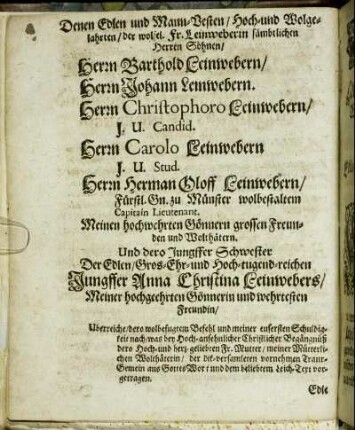 Denen Edlen und Mann-Vesten/ Hoch-und Wolge-
lahrten/ der wol sel. Fr. Leinweberin sämbtlichen
Herren Söhnen/
Herrn Barthold Leinwebern/
Herrn Johann Leinwebern.
Herrn Christophoro Leinwebern/
J. U. Candid.
Herrn Carolo Leinwebern
J. U. Stud.
Herrn Herman Oloff Leinwebern/
Fürstl. Gn. zu Münster wolbestaltem
Capitain Lieutenant.
Meinen hochwehrten Gönnern grossen Freun-
den und Wolthätern.
Und dero Jungffer Schwester
Der Edlen/ Gros-Ehr-und Hoch-tugend-reichen
Jungffer Anna Christina Leinwebers/
Meiner hochgeehrten Gönnerin und wehrtesten
Freundin/
Uberreiche/ dero wolbefugtem Befehl und meiner eusersten Schuldig-
keit nach/ was bey Hoch-ansehnlicher Christlicher Begängnüß
dero Hoch-und hertz-geliebten Fr. Mutter/ meiner Mütterli-
chen Wolthäterin/ der dit-versamleten vornehmen Traur-
Gemein aus Gottes Wort und dem beliebtem Leich-Text vor-
getragen.
Edle